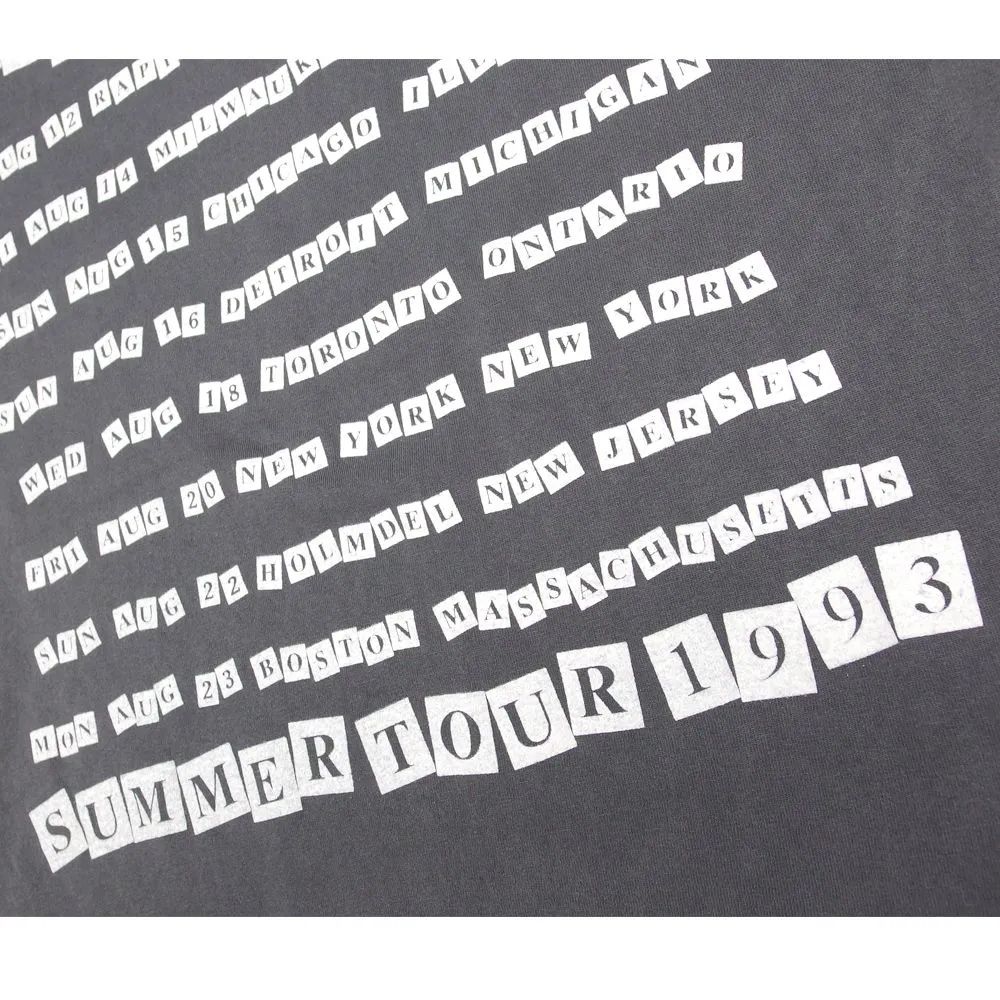 AUG 12
AUG 14
SUN AUG 15 CHICAGO
SUN AUG 16 DETROIT MICHIGAN
WED AUG 18 TORONTO ONTARIO
FRI AUG 20 NEW YORK NEW YORK
SUN AUG 22 HOLMDEL NEW JERSEY
MON AUG 23 BOSTON MASSACHUSETTS
SUMMER TOUR 1993